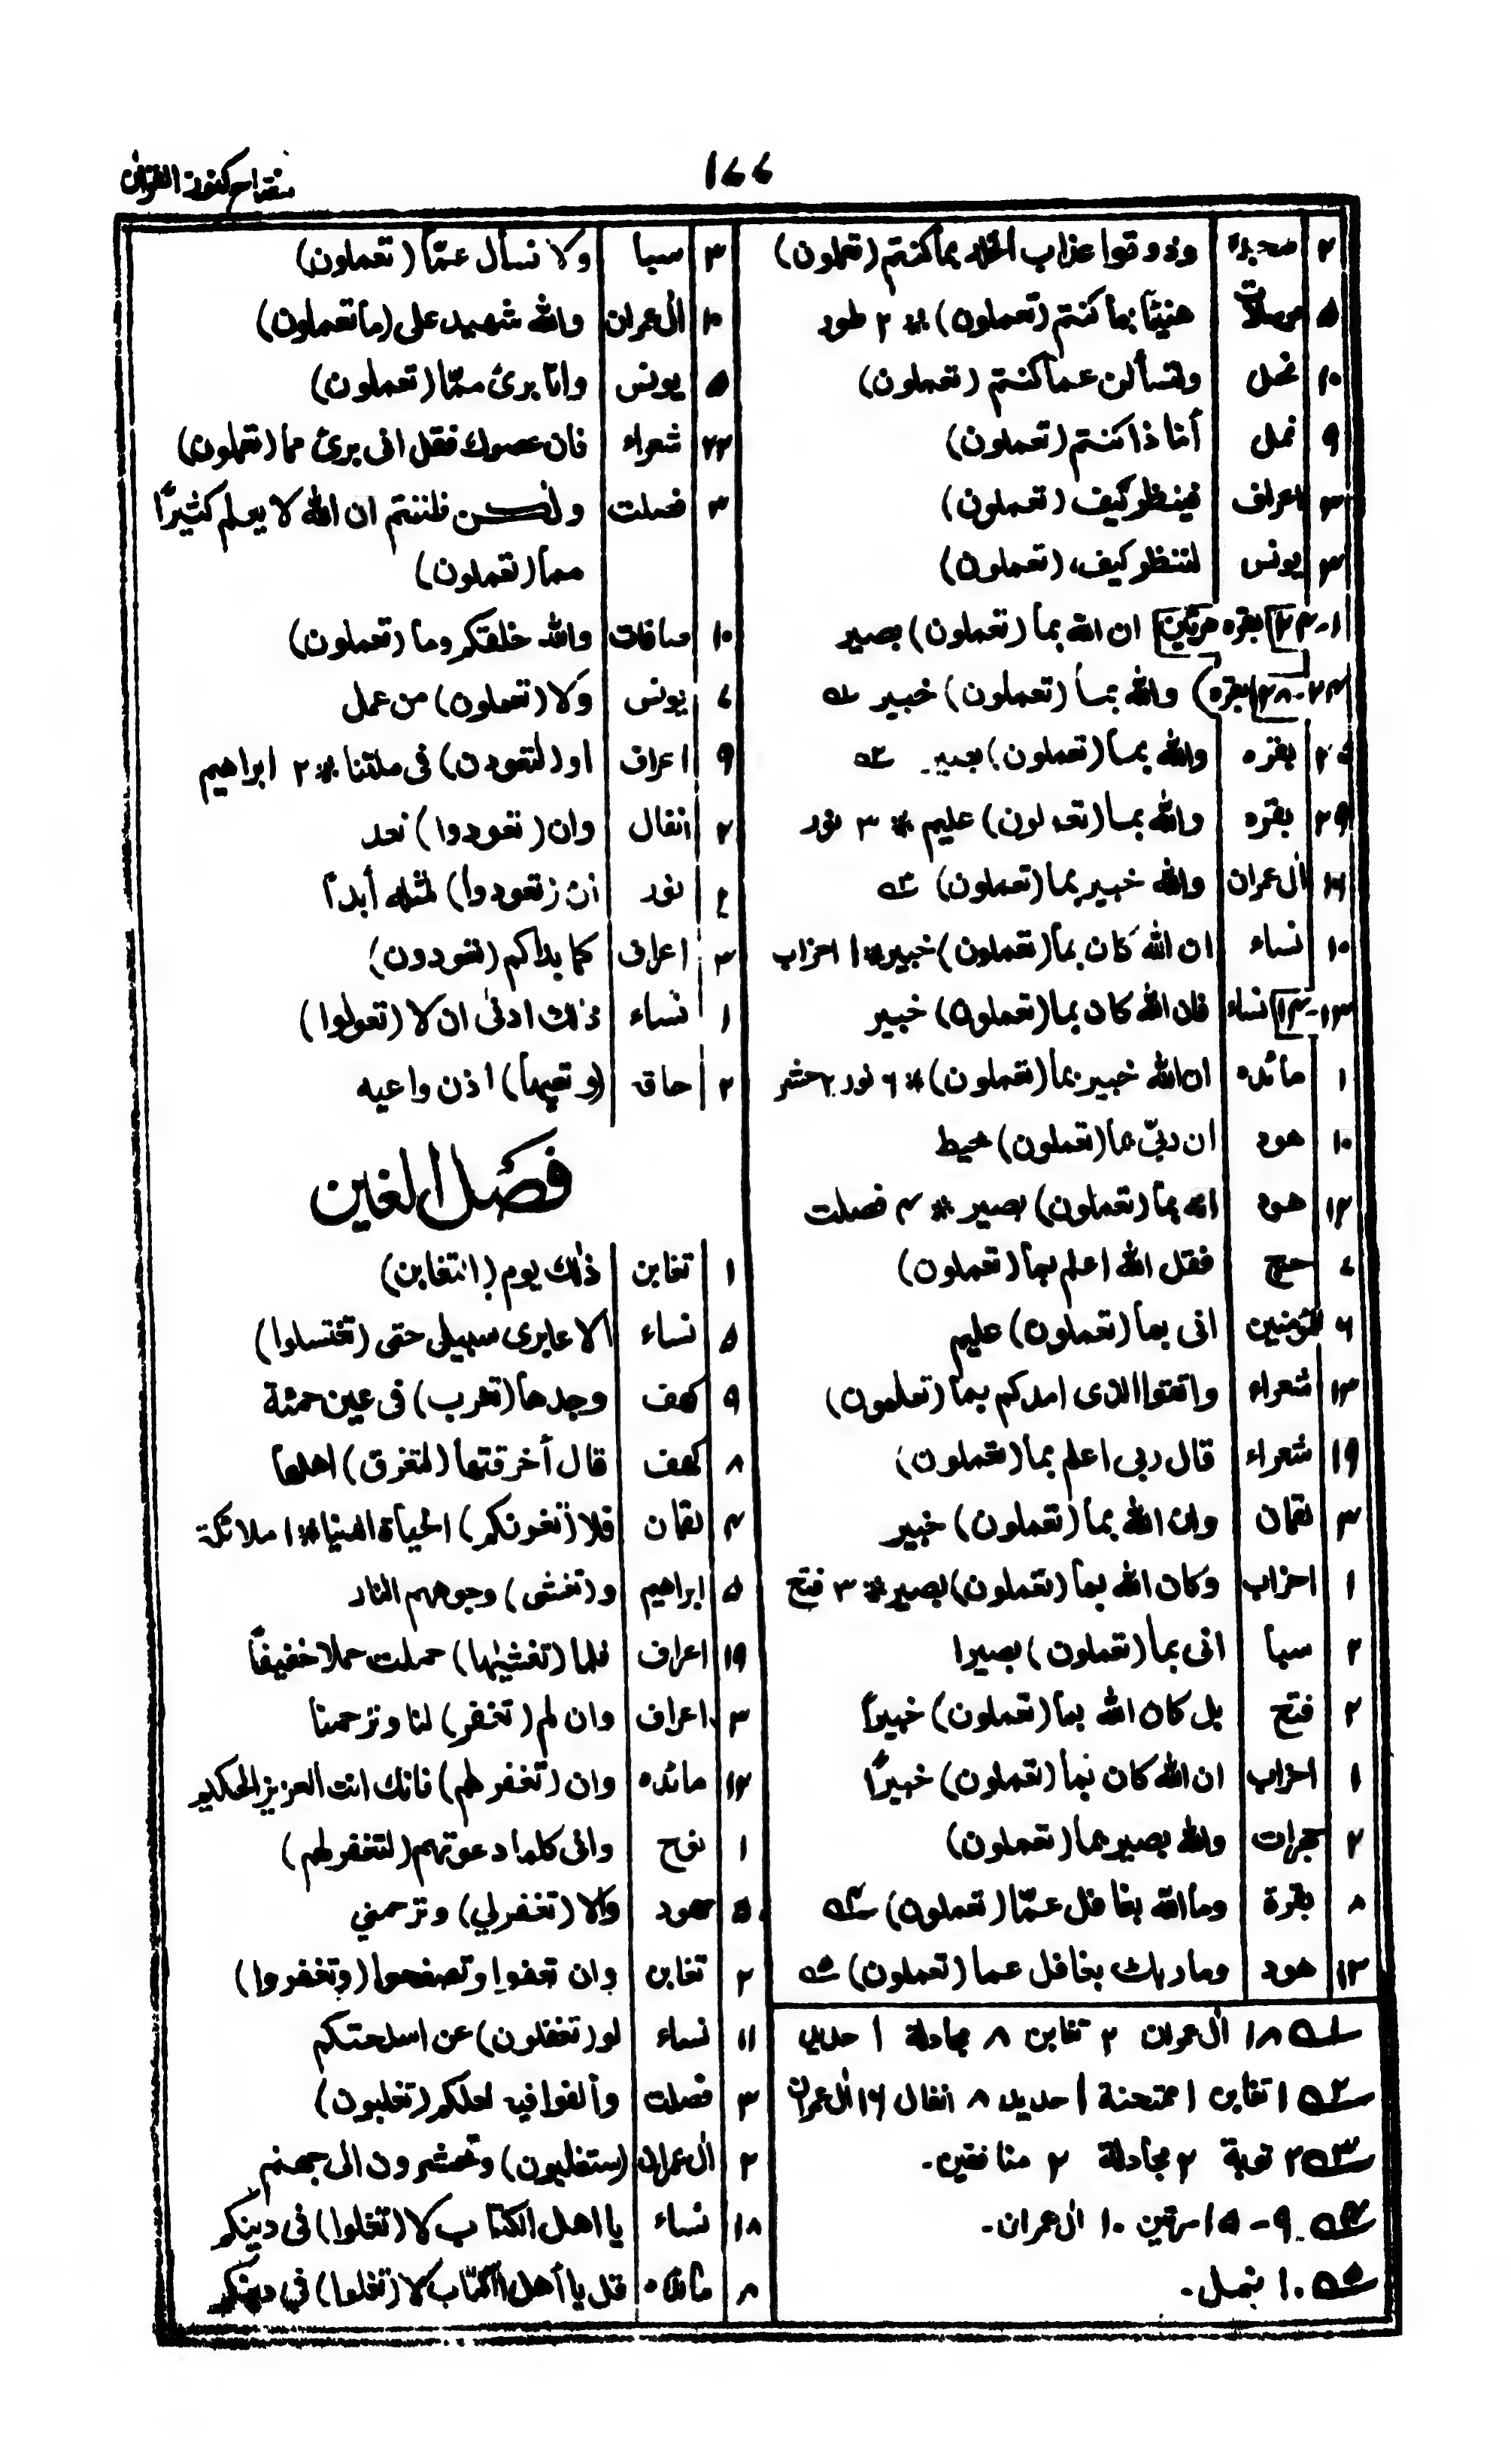 مفتاح كنوز القران
١٧٧
٢ سجده وذوقوا عذاب الخلد بما كنتم (تعملون)
٥ مرسلات هنيئاً بما كنتم (تعملون) * ٢ طور
١٠ نحل ولتسألن عما كنتم (تعملون)
٩ نمل أماذا كنتم (تعملون)
٣ اعراف فينظر كيف (تعملون)
٣ يونس لننظر كيف (تعملون)
١-٣ بقره مرتين ان الله بما (تعملون) بصير
بقره والله بما (تعملون) خبير
بقره والله بما (تعملون) بصير
٢٩ بقره والله بما (تعملون) عليم * ٣ نور
ال عمران والله خبير بما (تعملون)
١٠ نساء ان الله كان بما (تعملون) خبير * ١ احزاب
نساء فان الله كان بما (تعملون) خبير
١ مائده ان الله خبير بما (تعملون) * ٦ نور ٢ حشر
١٠ هود ان ربيّ بما (تعملون) محيط
١٢ هود انه بما (تعملون) بصير * ٣ فصلت
حج فقل الله اعلم بما (تعملون)
٦ المؤمنين انى بما (تعملون) عليم
١٣ شعراء واتقوا الذى امدكم بما (تعلمون)
١٩ شعراء قال ربى اعلم بما (تعملون)
٣ لقمان وان الله بما (تعملون) خبير
١ احزاب وكان الله بما (تعملون) بصير * ٣ فتح
٢ سبأ انى بما (تعملون) بصيرا
٢ فتح بل كان الله بما (تعملون) خبيراً
١ احزاب ان الله كان بما (تعملون) خبيراً
٢ حجرات والله بصير بما (تعملون)
٨ بقرة وما الله بغافل عمّا (تعملون)
هود وما ربك بغافل عما (تعملون)
١٨ ال عمران ٢ تغابن ٨ مجادلة ١ حديد
١ تغابن ١ ممتحنة ١ حديد ٨ انفال ١٦ ال عمران
٢ توبة ٢ مجادلة ٢ منافقين.
٩ – ١٥ مرتين ١٠ ال عمران.
١٠ نحل.
٣ سبا ولا نسأل عمّا (تعملون)
١٠ ال عمران والله شهيد على (ما تعملون)
٥ يونس وانا برئ ممّا (تعملون)
٢٢ شعراء فان عصوك فقل انى برئ مما (تعملون)
٣ فصلت ولكن ظننتم ان الله لا يعلم كثيرًا
مما (تعملون)
١٠ صافات والله خلقكم وما (تعملون)
٧ يونس ولا (تعملون) من عمل
٩ اعراف او (لتعودن) فى ملتنا * ٢ ابراهيم
٢ انفال وان (تعودوا) نعد
نور ان (تعودوا) لمثله أبداً
٣ اعراف كما بداكم (تعودون)
١ نساء ذلك ادنى ان لا (تعولوا)
٢ حاقه (وتعيها) اذن واعيه
فصل الغين
١ تغابن ذلك يوم (التغابن)
٥ نساء الا عابرى سبيل حتى (تغتسلوا)
٩ كهف وجدها (تغرب) فى عين حمئة
٨ كهف قال أخرقتها (لتغرق) اهلها
٣ لقمان فلا (تغرنكم) الحياة الدنيا * ١ ملائكة
٥ ابراهيم و (تغشى) وجوههم النار
١٩ اعراف فلما (تغشيها) حملت حملا خفيفاً
٣ اعراف وان لم (تغفر) لنا وترحمنا
١٢ مائده وان (تغفر لهم) فانك انت العزيز الحكيم
١ نوح وانى كلما دعوتهم (لتغفر لهم)
٥ هود والا (تغفر لي) وترحمني
٢ تغابن وان تعفوا وتصفحوا (وتغفروا)
١١ نساء لو (تغفلون) عن اسلحتكم
٣ فصلت وألغوا فيه لعلكم (تغلبون)
٢ ال عمران (ستغلبون) وتحشرون الى جهنم
١٨ نساء يا اهل الكتاب لا (تغلوا) فى دينكم
٨ مائده قل يا أهل الكتاب لا (تغلوا) في دينكم